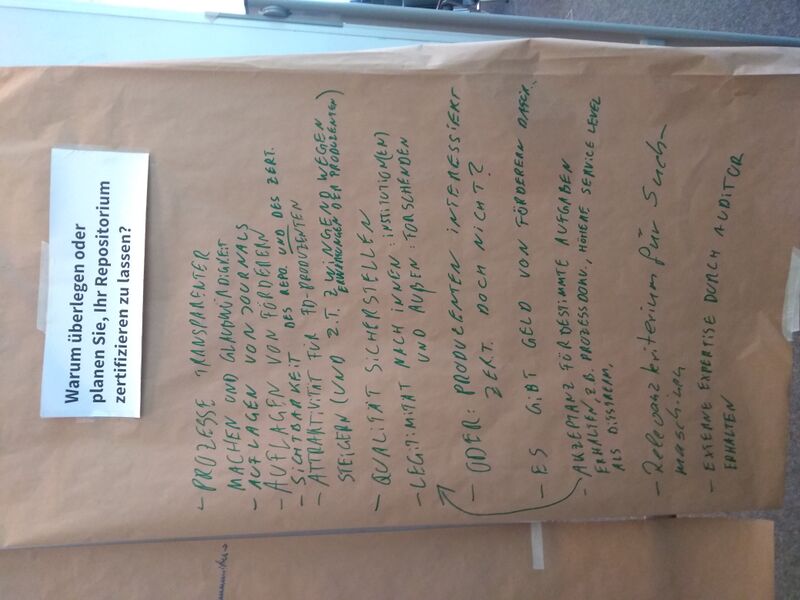 Warum überlegen oder
planen Sie, Ihr Repositorium
zertifizieren zu lassen?
- PROZESSE TRANSPARENTER
MACHEN UND GLAUBWÜRDIGKEIT
- AUFLAGEN VON JOURNALS
- AUFLAGEN VON FÖRDERERN
- SICHTBARKEIT DES REPO. UND DES ZERT.
- ATTRAKTIVITÄT FÜR FD-PRODUZENTEN
STEIGERN (UND Z.T. ZWINGEND WEGEN
DER PRODUZENTEN)
- QUALITÄT SICHERSTELLEN
- LEGITIMITÄT NACH INNEN: INSTITUTION(EN)
UND AUßEN: FORSCHENDEN
- ODER: PRODUZENTEN INTERESSIERT
ZERT. DOCH NICHT?
- ES GIBT GELD VON FÖRDERERN DAFÜR..
- AKZEPTANZ FÜR BESTIMMTE AUFGABEN
ERHALTEN, Z.B. PROZESSDOKU., HÖHERE SERVICE LEVEL
ALS
- Relevanzkriterium für Such-
maschinen
- EXTERNE EXPERTISE DURCH AUDITOR
ERHALTEN